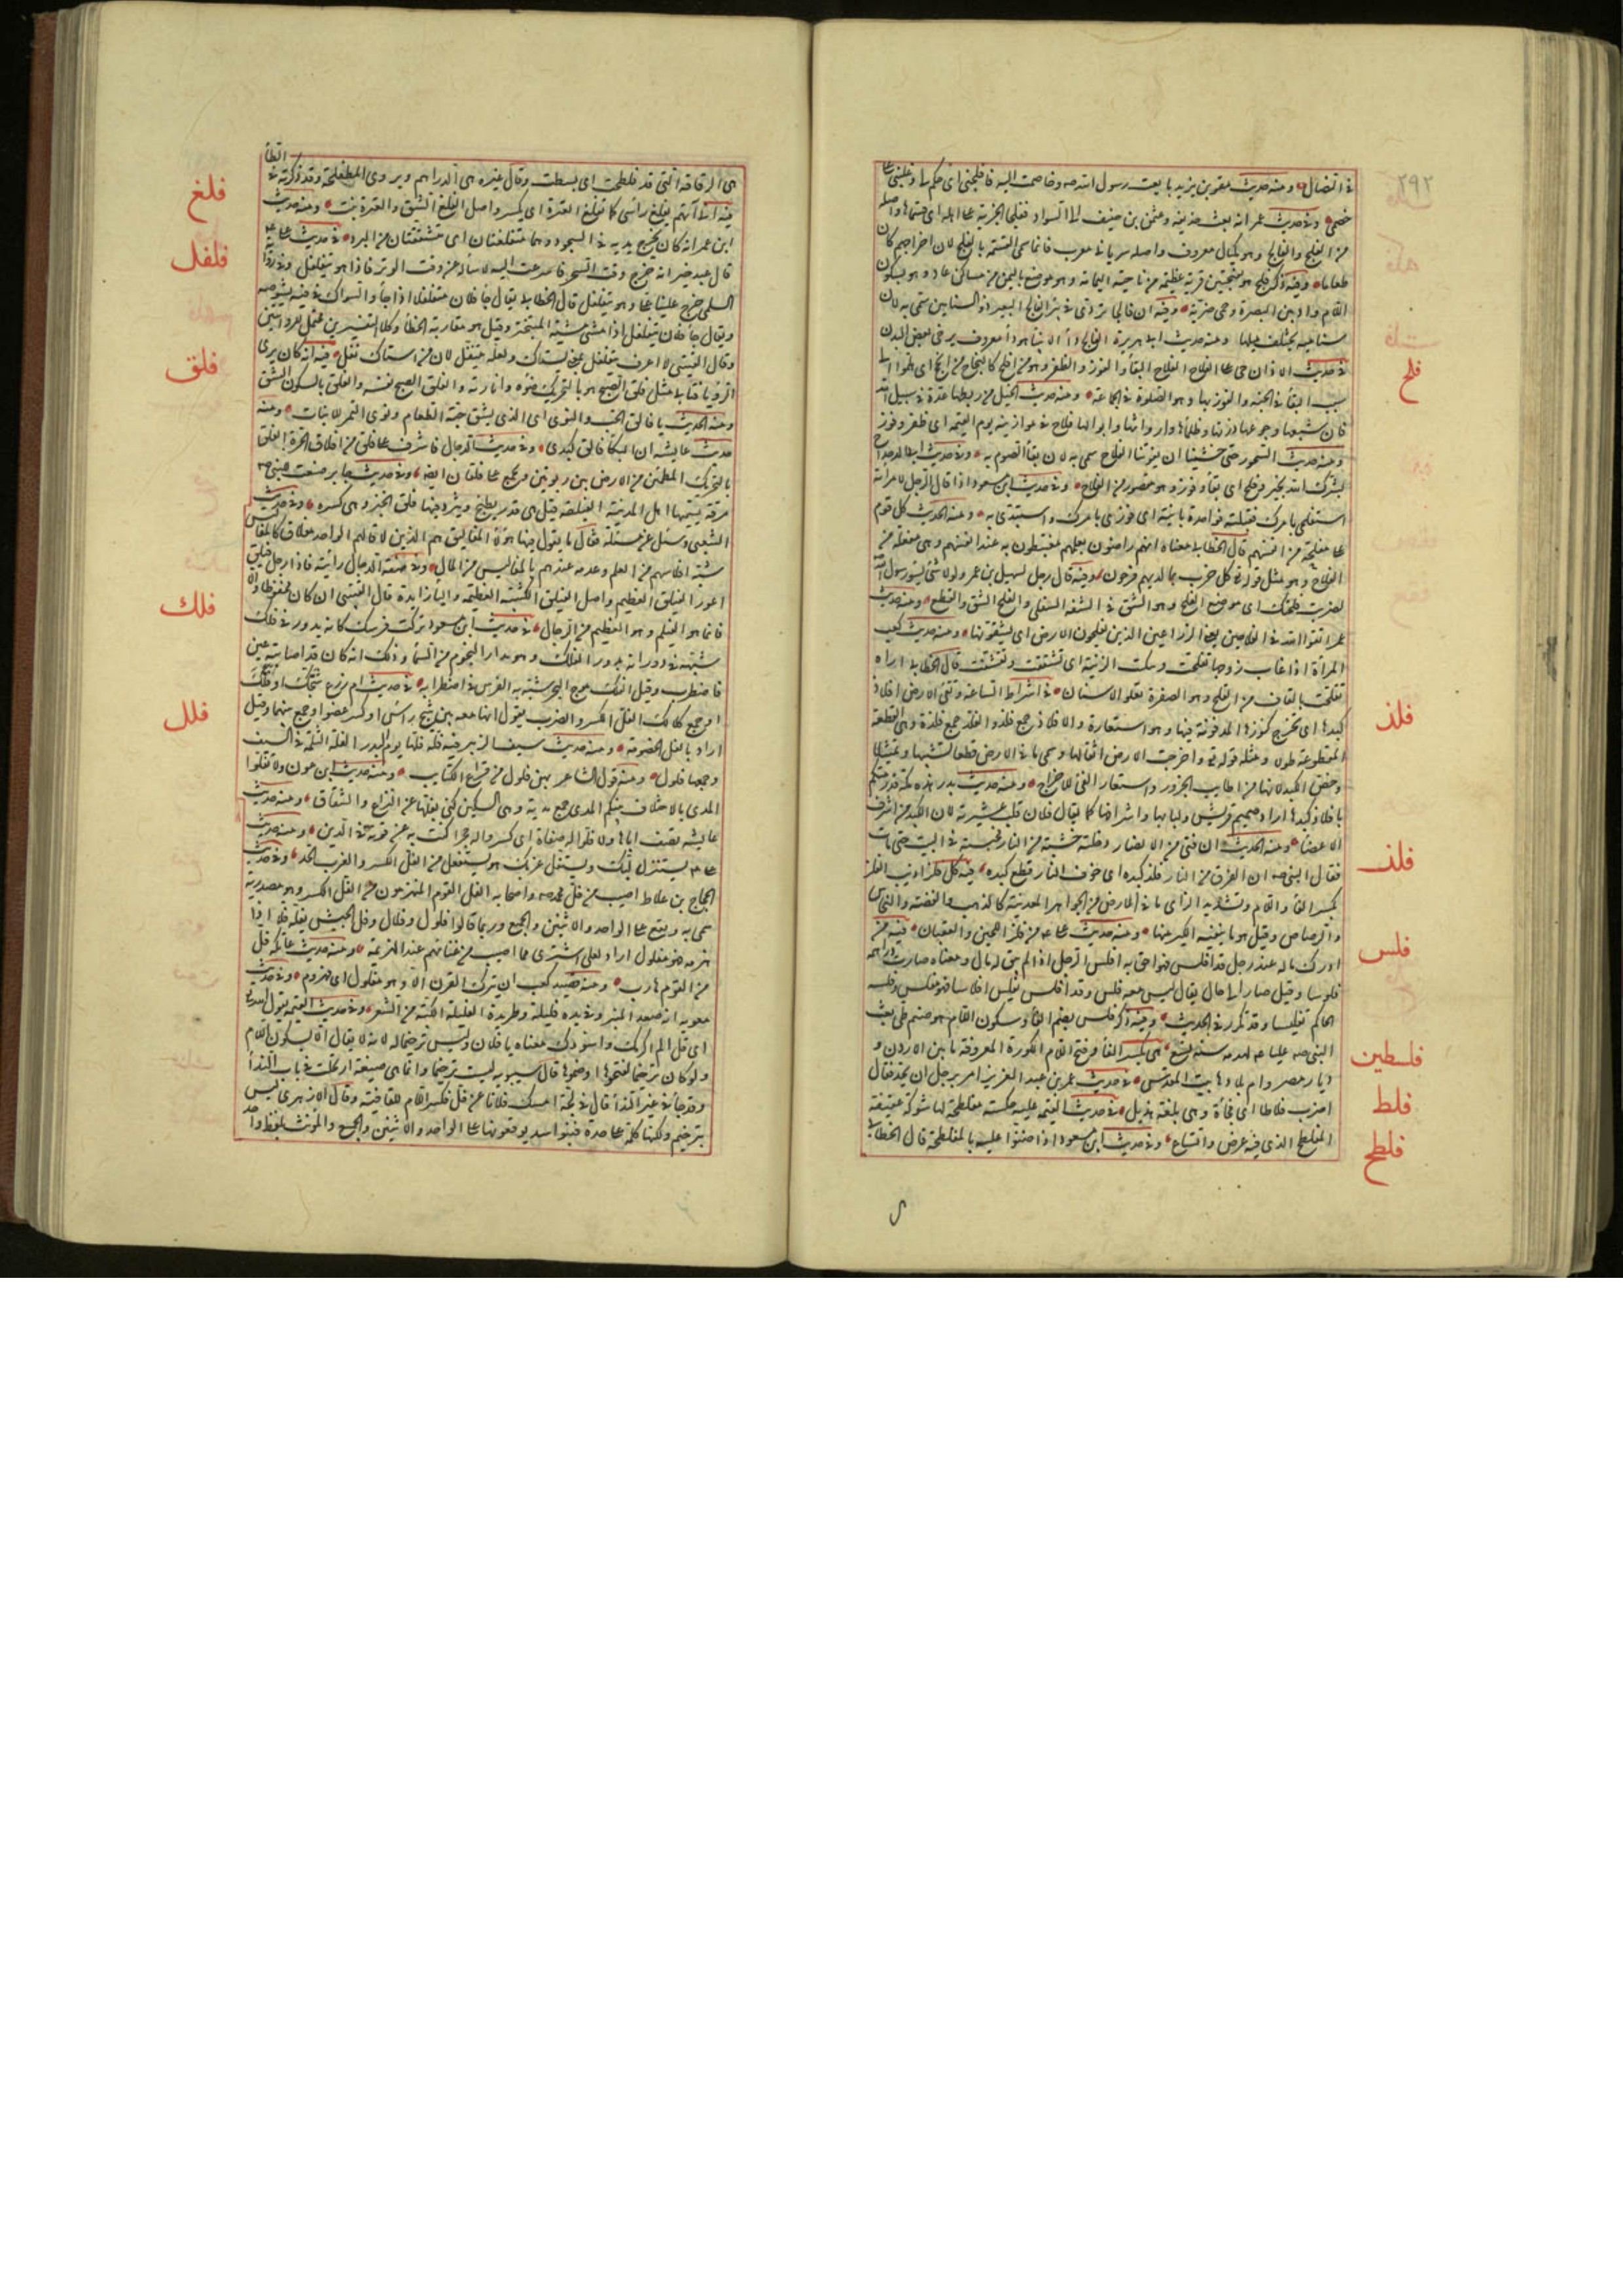 ٢٩٢
في النضال ومنه حديث معن بن يزيد بايعت رسول الله صه وخاصمت اليه فافلجني اى حكم لى وغلبنى على
خصمى وفى حديث عمر انه بعث حذيفه وعثمن بن حنيف الى السواد ففلجا الجزية على اهله اى قسماها واصله
من الفلج والفالج وهو مكيال معروف واصله سريانى معرب فانما سمى القسمة بالفلج لان خراجهم كان
طعاما وفيه ذكر فلج هو بفتحتين قرية عظيمة من ناحية اليمامة وهو موضع باليمن من مساكن عاد وهو بسكون
اللام واد بين البصرة وحمى ضرية وفيه ان فالجا تردى فى بئر الفالج البعير ذو السنامين سمى به لان
سناميه يختلف ميلهما ومنه حديث ابى هريرة الفالج داء الانبياء هو داء معروف يرخى بعض البدن
فلح
فى حديث الاذان حى على الفلاح الفلاح البقاء والفوز والظفر وهو من افلح كالنجاح من انجح اى هلموا الى
سبب البقاء فى الجنه والفوز بها وهو الصلوة فى الجماعة ومنه حديث الخيل من ربطها عدة فى سبيل الله
فان شبعها وجوعها وريها وظمأها وارواثها وابوالها فلاح فى موازينه يوم القيمة اى ظفر وفوز
ومنه حديث السحور حتى خشينا ان يفوتنا الفلاح سمى به لان بقاء الصوم به وفى حديث ابى الدحداح
بشرك الله بخير وفلح اى بقاء وفوز وهو مقصور من الفلاح وفى حديث ابن مسعود اذا قال الرجل لامرأته
استفلحى بامرك فقبلته فواحدة بائنة اى فوزى بامرك واستبدى به ومنه الحديث كل قوم
على مفلحة من انفسهم قال الخطابى معناه انهم راضون بعلمهم مغتبطون به عند انفسهم وهى مفعلة من
الفلاح وهو مثل قوله تع كل حزب بما لديهم فرحون وفيه قال رجل لسهيل بن عمرو لولا شئ يسوء رسول الله
لضربت فلحتك اى موضع الفلح وهو الشق فى الشفه السفلى والفلح الشق والقطع ومنه حديث
عمر اتقوا الله فى الفلاحين يعنى الزراعين الذين يفلحون الارض اى يشقونها ومنه حديث كعب
المراة اذا غاب زوجها تفلحت وتنكبت الزينة اى تشققت وتقشفت قال الخطابى اراه
تقلحت بالقاف من القلح وهو الصفرة تعلو الاسنان
فلذ
فى اشراط الساعة وتقئ الارض افلاذ
كبدها اى تخرج كنوزها المدفونة فيها وهو استعارة والافلاذ جمع فلذ والفلذ جمع فلذة وهى القطعة
المقطوعة طولا ومثله قوله تع واخرجت الارض اثقالها وسمى ما فى الارض قطعا تشبيها وتمثيلا
وخص الكبد لانها من اطايب الجزور واستعار القئ للاخراج ومنه حديث بدر هذه مكة قد رمتكم
بافلاذ كبدها اراد صميم قريش ولبابها واشرافها كما يقال فلان قلب عشيرته لان الكبد من اشرف
الاعضاء ومنه الحديث ان فتى من الانصار دخلته خشية من النار فحبسته فى البيت حتى مات
فقال النبى صه ان الفرق من النار فلذ كبده اى خوف النار قطع كبده
فلز
فيه كل فلز اذيب الفلز
بكسر الفاء واللام وتشديد الزاى ما فى الارض من الجواهر المعدنية كالذهب والفضه والنحاس
والرصاص وقيل هو ما ينفيه الكير منها ومنه حديث على من فلز اللجين والعقيان
فلس
فيه من
ادرك ماله عند رجل قد افلس فهو احق به افلس الرجل اذا لم يبق له مال ومعناه صارت دراهمه
فلوسا وقيل صار الى حال يقال ليس معه فلس وقد افلس يفلس افلاسا فهو مفلس وفلسه
الحاكم تفليسا وقد تكرر فى الحديث وفيه ذكر فلس بضم الفاء وسكون اللام هو صنم طى بعث
النبى صه عليا لهدمه سنة تسع
فلسطين
هى بكسر الفاء وفتح اللام الكورة المعروفة ما بين الاردن و
ديار مصر وام بلادها بيت المقدس
فلط
فى حديث عمر بن عبد العزيز امر برجل ان يحد فقال
اضرب فلاطا اى فجأة وهى بلغة هذيل
فلطح
فى حديث القيمه عليه حسكة مفلطحة لها شوكة عقيفة
المفلطح الذى فيه عرض واتساع وفى حديث ابن مسعود اذا ضنوا عليه بالمفلطحة قال الخطابى
هى الرقاقة التى قد فلطحت اى بسطت وقال غيره هى الدراهم ويروى المطلفحة وقد ذكرت فى الطاء
فلغ
فيه انى ان آتهم يفلغ رأسى كما تفلغ العترة اى يكسر واصل الفلغ الشق والعترة نبت ومنه حديث
ابن عمر انه كان يخرج يديه فى السجود وهما متفلغتان اى متشققتان من البرد
فلفل
فى حديث على
قال عبد خير انه خرج وقت السحر فاسرعت اليه لاسأله عن وقت الوتر فاذا هو يتفلفل وفى رواية
السلمى خرج علينا على وهو يتفلفل قال الخطابى يقال جاء فلان متفلفلا اذا جاء والسواك فى فيه يشوصه
ويقال جاء فلان يتفلفل اذا مشى مشية المتبختر وقيل هو مقاربة الخطا وكلا التفسيرين محتمل للروايتين
وقال القتيبى لا اعرف يتفلفل بمعنى يستاك ولعله يتتفل لان من استاك تفل
فلق
فيه انه كان يرى
الرؤيا فتاتى مثل فلق الصبح هو بالتحريك ضوءه وانارته والفلق الصبح نفسه والفلق بالسكون الشق
ومنه الحديث يا فالق الحب والنوى اى الذى يشق حبة الطعام ونوى التمر للانبات ومنه
حديث عايشه ان البكاء فالق كبدى وفى حديث الدجال فاشرف على فلق من افلاق الحرة الفلق
بالتحريك المطمئن من الارض بين ربوتين ويجمع على فلقان ايضا وفى حديث جابر صنعت للنبى صه
مرقة يسميها اهل المدينة الفليقة قيل هى قدر يطبخ ويثرد فيها فلق الخبز وهى كسره وفى حديث
الشعبى وسئل عن مسئلة فقال ما يقول فيها هؤلاء المفاليق هم الذين لا مال لهم الواحد مفلاق كالمفاليس
شبه افلاسهم من العلم وعدمه عندهم بالمفاليس من المال وفى صفة الدجال رأيته فاذا رجل فيلق
اعور الفيلق العظيم واصل الفيلق الكتيبة العظيمه والياء زايدة قال القتيبى ان كان محفوظا والا
فانما هو الفيلم وهو العظيم من الرجال
فلك
فى حديث ابن مسعود تركت فرسك كانه يدور فى فلك
شبهه فى دورانه بدوران الفلك وهو مدار النجوم من السماء وذلك انه كان قد اصابته عين
فاضطرب وقيل الفلك موج البحر شبه به الفرس فى اضطرابه
فلل
فى حديث ام زرع شجك او فلك
او جمع كلا لك الفل الكسر والضرب يقول انها معه بين شج راس او كسر عضو او جمع بينهما وقيل
اراد بالفل الخصومة ومنه حديث سيف الزبير فيه فلة فلها يوم بدر الفلة الثلمة فى السيف
وجمعها فلول ومنه قول الشاعر بهن فلول من قراع الكتايب ومنه حديث ابن عوف ولا تفلوا
المدى بالاختلاف بينكم المدى جمع مدية وهى السكين كنى بفلها عن النزاع والشقاق ومنه حديث
عايشه تصف اباها ولا فلوا له صفاة اى كسروا له حجرا كنت به عن قوته فى الدين ومنه حديث
على يستزل لبك ويستفل غربك هو يستفعل من الفل الكسر والغرب الحد وفى حديث
الحجاج بن علاط اصيب من فل محمد صه واصحابه الفل القوم المنهزمون من الفل الكسر وهو مصدر
سمى به ويقع على الواحد والاثنين والجمع وربما قالوا فلول وفلال وفل الجيش يفله فلا اذا
هزمه فهو مفلول اراد لعلى اشترى مما اصيب من غنايمهم عند الهزيمة ومنه حديث عاتكه فل
من القوم هارب ومنه قصيد كعب ان يترك القرن الا وهو مفلول اى مهزوم وفى حديث
معويه انه صعد المنبر وفى يده فليلة وطريدة الفليلة الكبة من الشعر وفى حديث القيمه يقول الله
اى فل الم اكرمك واسودك معناه يا فلان وليس ترخيما له لانه لا يقال الا بسكون اللام
ولو كان ترخيما لفتحوها او ضموها قال سيبويه ليست ترخيما وانما هى صيغة ارتجلت فى باب النداء
وقد جاء فى غير النداء قال فى لجة امسك فلانا عن فل فكسر اللام للقافية وقال الازهرى ليس
بترخيم ولكنها كلمة على حدة فبنو اسد يوقعونها على الواحد والاثنين والجمع والمؤنث بلفظ واحد